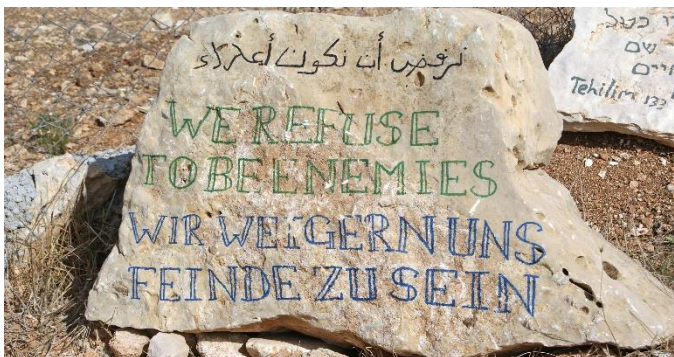 نرفض أن نكون أعداء
WE REFUSE
TO BE ENEMIES
WIR WEIGERN UNS
FEINDE ZU SEIN
שם
Tehilim 133